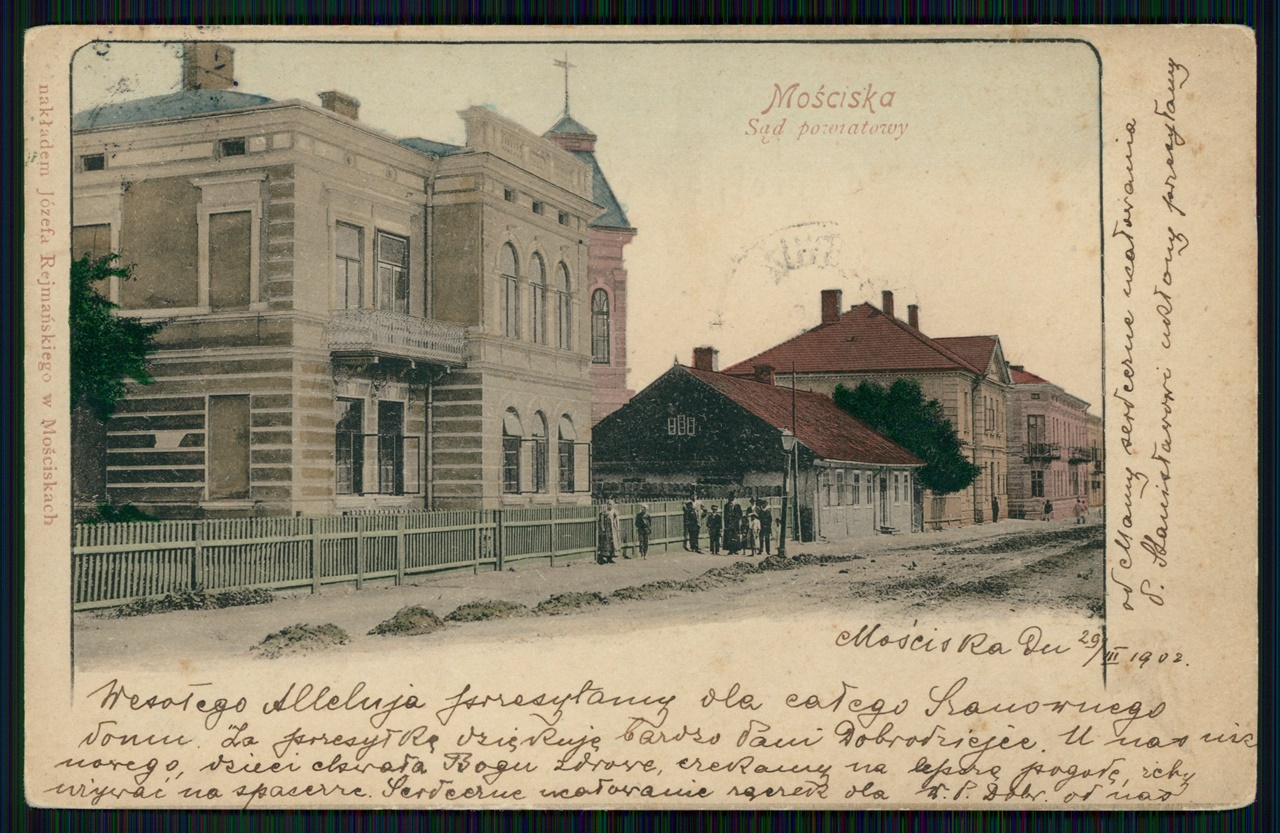 Mościska
Sąd powiatowy
nakładem Józefa Rejmańskiego w Mościskach
Mościska Dn 29/III 1902.
Wesołego Alleluja przesyłamy dla całego Szanownego
domu. Za przesyłkę dziękuję bardzo Pani Dobrodziejce. U nas nic
nowego, dzieci chwała Bogu zdrowe, czekamy na lepszą pogodę, żeby
używać na spacerze. Serdeczne ucałowanie rączek dla W. P. Dobr. od nas
od Mamy serdeczne ucałowania
P. Stanisławowi ukłony przesyłamy